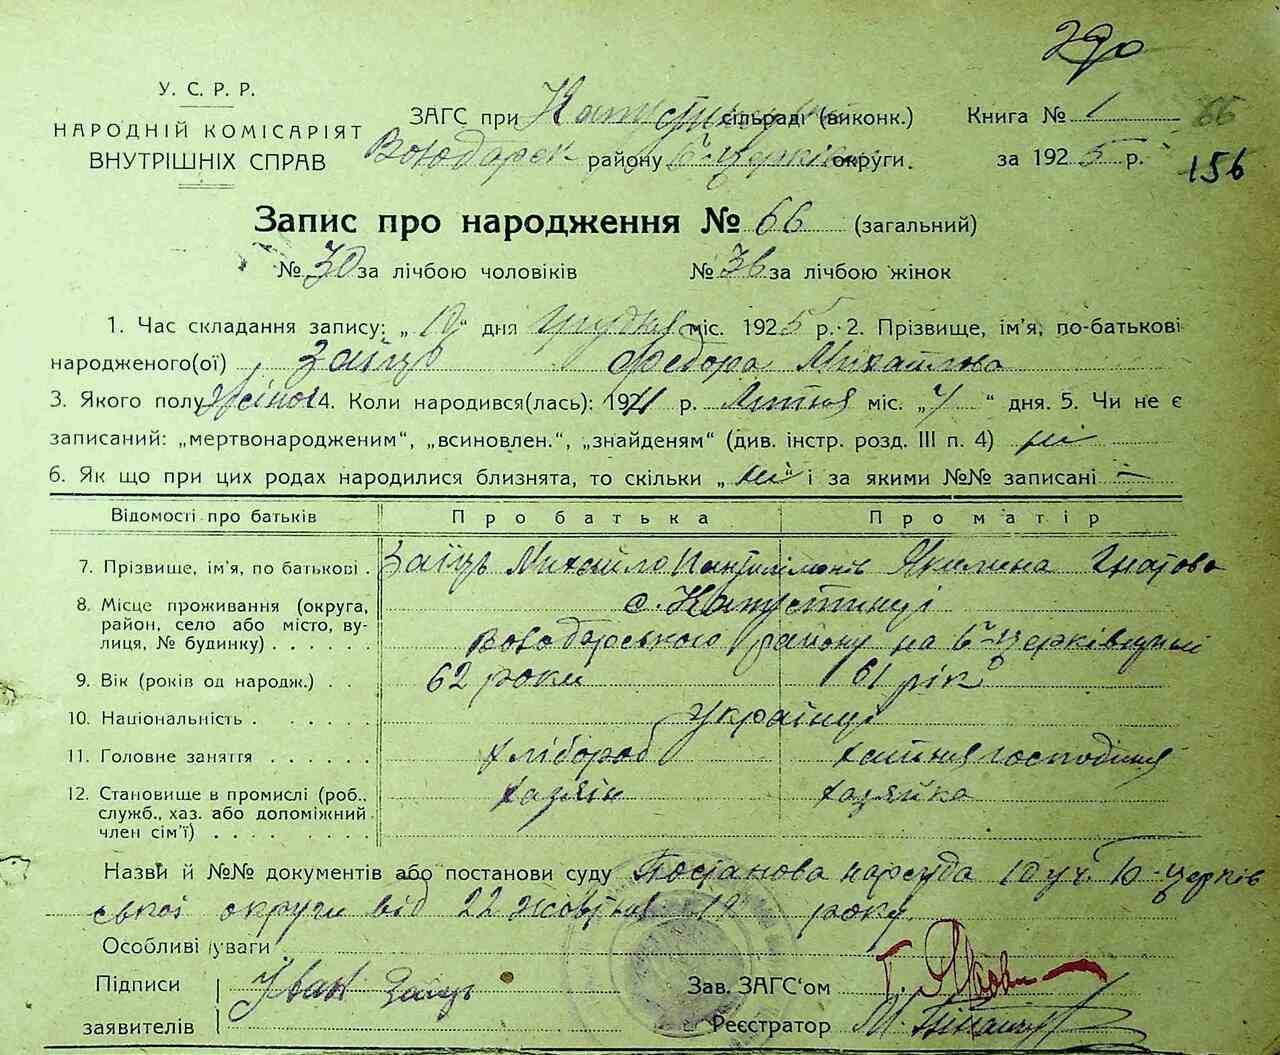 290
У. С. Р. Р.
НАРОДНІЙ КОМІСАРІЯТ
ВНУТРІШНІХ СПРАВ
ЗАГС при сільраді (виконк.)
Володарськ району Б-Церківськ округи.
Книга № 1 66
за 1925 р. 156
Запис про народження № 66 (загальний)
№ 30 за лічбою чоловіків № 36 за лічбою жінок
1. Час складання запису: „ 10 “ дня грудня міс. 1925 р. 2. Прізвище, ім'я, по-батькові
народженого(ої) Заїць Федора Михайлова
3. Якого полу 4. Коли народився(лась): 19 р. міс. „7“ дня. 5. Чи не є
записаний: „мертвонародженим“, „всиновлен.“, „знайденям“ (див. інстр. розд. III п. 4) ні
6. Як що при цих родах народилися близнята, то скільки „ ні “ і за якими №№ записані –
Відомості про батьків Про батька Про матір
7. Прізвище, ім'я, по батькові . Заїць Михайло Пантилімонів Якилина Гнатова
8. Місце проживання (округа, район, село або місто, вулиця, № будинку) . . . . . с. Капустинці
Володарського району на Б-Церківщині
9. Вік (років од народж.) . . 62 роки 61 рік
10. Національність . . . . . . українці
11. Головне заняття . . . . . . хлібороб хатня господиня
12. Становище в промислі (роб., служб., хаз. або допоміжний член сім'ї) . . . . . . . хазяїн хазяйка
Назви й №№ документів або постанови суду Постанова нарсуда 10 уч. Б-Церків
ської округи від 22 жовтня 19 року.
Особливі уваги
Підписи Іван Заїць Зав. ЗАГС'ом
заявителів Реєстратор